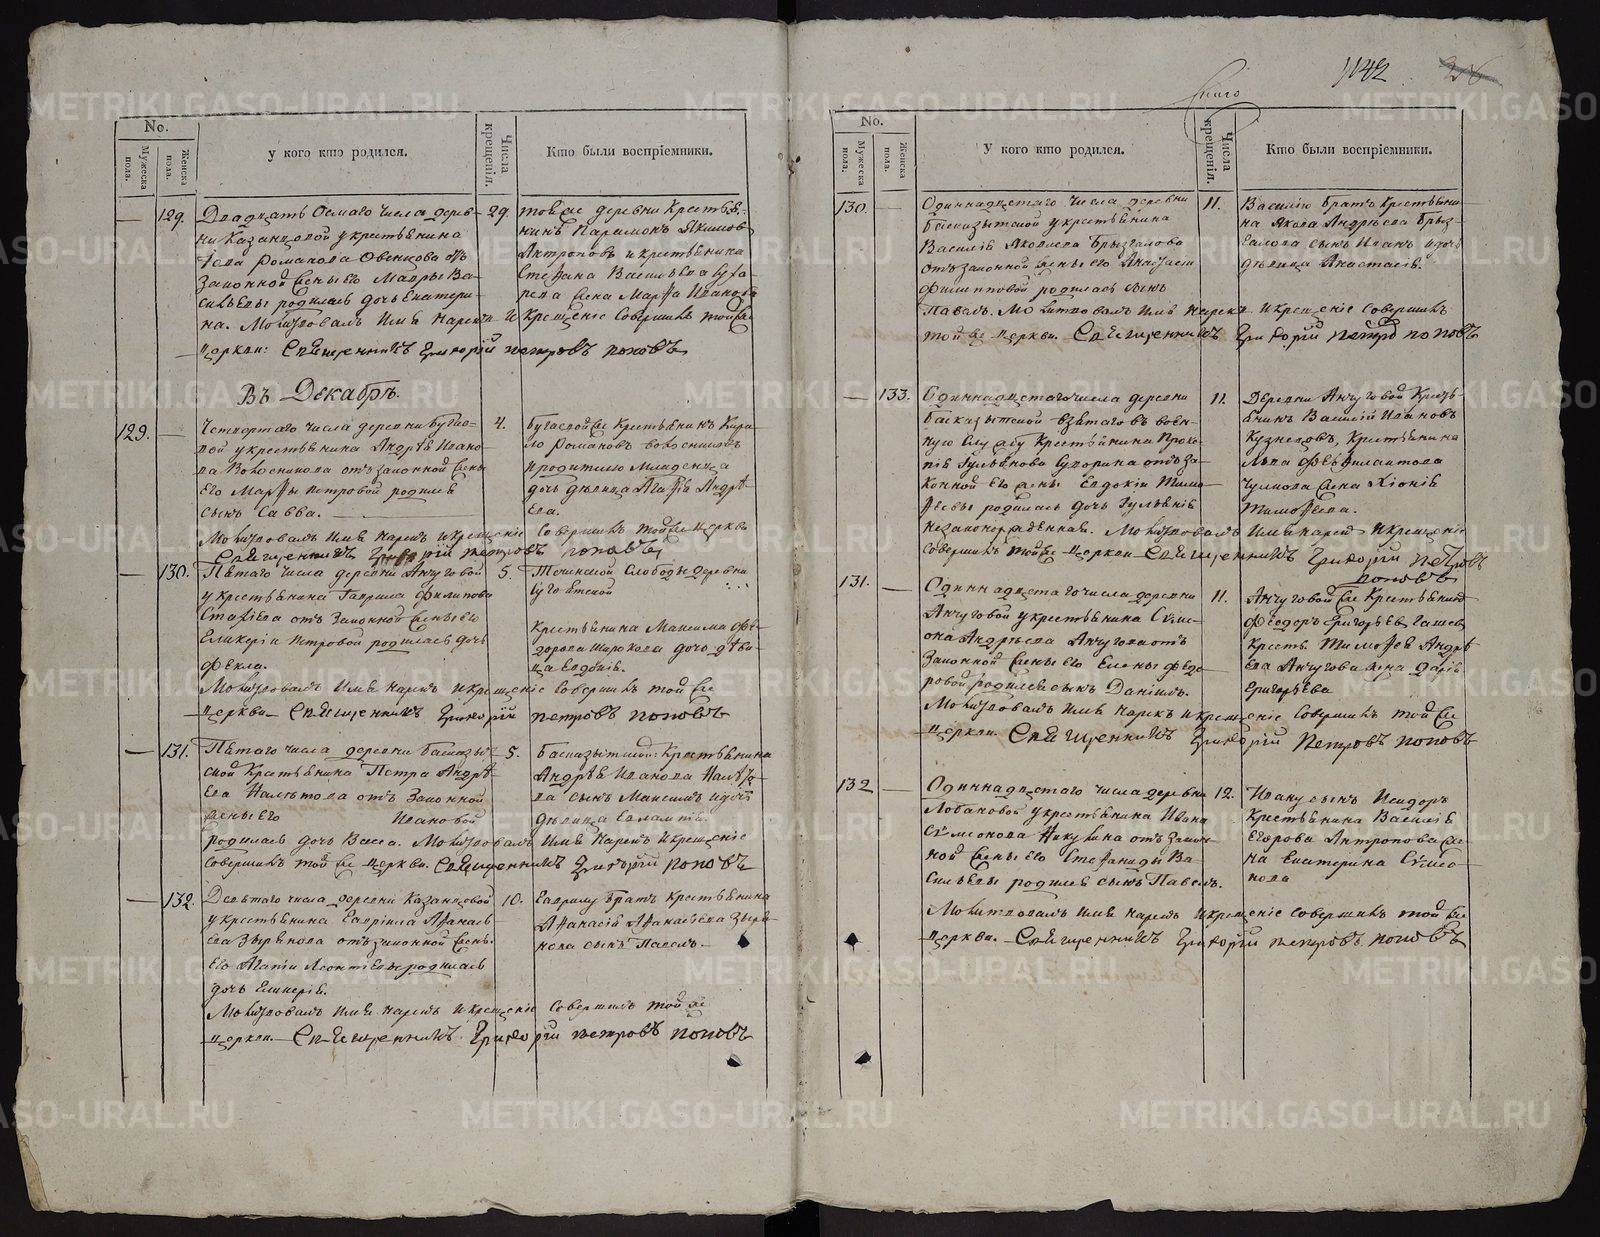 1142
No.
Мужеска пола.
Женска пола.
у кого кто родился.
Числа крещенія.
Кто были воспріемники.
129.
Двадцать Осмаго числа дерев-
ни Казанцовой у крестьянина
Іева Романова Овенкова отъ
Законной жены его Мавры Ва-
сильевы родилась дочь Екатери-
на. Молитвовалъ имя нарекъ и крещеніе совершилъ той же
церкви: Священникъ Григорій Петровъ Поповъ
29.
тойже деревни Крестья-
нинъ Парамонъ Якимовъ
Антроповъ и крестьянина
Стефана Васильева
жена Марфа Иванова
Въ Декабрѣ.
129.
Четвертаго числа деревни Бугае-
вой у крестьянина Андрея Ивано-
ва отъ законной жены
его Марфы Петровой родился
сынъ Савва.
Молитвовалъ имя нарекъ и крещеніе совершилъ тойже церкви
Священникъ Григорій Петровъ Поповъ
4.
Бугаевойже Крестьянинъ Кири-
ло Романовъ
родителю младенца
дочь дѣвица Агафія Андрѣ-
ева.
130.
Пятаго числа деревни Анчуговой
у крестьянина Гаврила Филипова
отъ Законной жены его
Гликеріи Петровой родилась дочь
Фекла.
Молитвовалъ имя нарекъ и крещеніе совершилъ той же
церкви Священникъ Григорій Петровъ Поповъ
5.
Теченской Слободы деревни
Крестьянина Максима Фе-
дорова Широкова дочь дѣви-
ца Евдокія.
131.
Пятаго числа деревни Басказык-
ской Крестьянина Петра Андрѣ-
ева Налѣтова отъ Законной
жены его Ивановой
родилась дочь Васса. Молитвовалъ имя нарекъ и крещеніе
совершилъ той же церкви. Священникъ Григорій Поповъ
5.
Басказыкской Крестьянина
Андрѣя Иванова Налѣто-
ва сынъ Максимъ и дочь
дѣвица Евалампія.
132.
Девятаго числа деревни Казанцовой
у крестьянина Гавріила Афанась
ева Зырянова отъ законной жены
его Агафіи Леонтіевы родилась
дочь Гликерія.
Молитвовалъ имя нарекъ и крещеніе совершилъ той же
церкви. Священникъ Григорій Петровъ Поповъ
10.
Гаврилу братъ крестьянина
Афанасія Афанасьева Зыря-
нова сынъ Павелъ.
No.
Мужеска пола.
Женска пола.
У кого кто родился.
Числа крещенія.
Кто были воспріемники.
130.
Одиннадцатаго числа деревни
Басказыкской у крестьянина
Василія Яковлева Брызгалова
отъ законной жены его Анастасіи
Филипповой родился сынъ
Павелъ. Молитвовалъ имя нарекъ и крещеніе совершилъ
той же церкви. Священникъ Григорій Петровъ Поповъ
11.
Василію братъ крестьяни-
на Якова Андрѣева Брыз-
галова сынъ Иванъ и дочь
дѣвица Анастасія.
133.
Одиннадцатаго числа деревни
Басказыкской взятаго въ воен-
ную службу Крестьянина Проко-
пія Гульянова отъ за-
конной его жены Евдокіи Тимо-
феевы родилась дочь Гульянія
незаконорожденная. Молитвовалъ имя нарекъ и крещеніе
совершилъ тойже церкви Священникъ Григорій Петровъ
Поповъ
11.
Деревни Анчуговой Кресть-
янинъ Василій Ивановъ
Кузнецовъ, Крестьянина
Льва Феофилактова
жена Хіонія
Тимофеева.
131.
Одиннадцатаго числа деревни
Анчуговой у крестьянина Симе-
она Андрѣева Анчугова отъ
Законной жены его Елены Федо-
ровой родился сынъ Даніилъ.
Молитвовалъ имя нарекъ и крещеніе совершилъ той же
церкви. Священникъ Григорій Петровъ Поповъ
11.
Анчуговойже Крестьянинъ
Феодоръ Григорьевъ
Кресть. Тимофея Андрѣ-
ева Анчугова жена Дарія
Григорьева
132
Одиннадцатаго числа деревни
Лобановой у крестьянина Ивана
Симеонова Никулина отъ закон-
ной жены его Стефаниды Ва-
сильевы родился сынъ Павелъ.
Молитвовалъ имя нарекъ и крещеніе совершилъ той же
церкви. Священникъ Григорій Петровъ Поповъ
12.
Ивану сынъ Исидоръ
Крестьянина Василія
Егорова Антропова же-
на Екатерина Симео-
нова